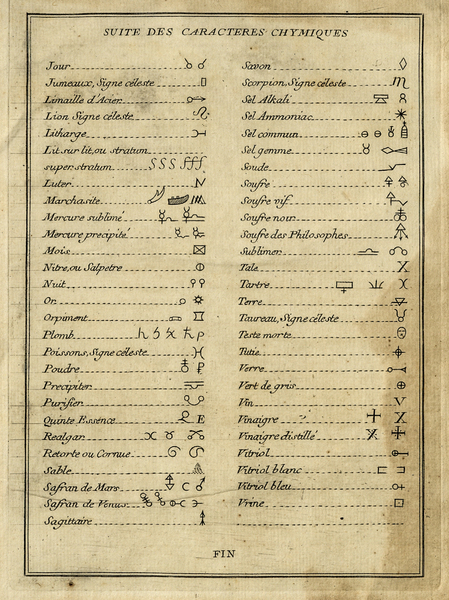 SUITE DES CARACTERES CHYMIQUES
Jour
Jumeaux, Signe céleste
Limaille d'Acier
Lion Signe céleste
Litharge
Lit sur lit, ou stratum
super stratum SSS SSS
Luter
Marchasite
Mercure sublimé
Mercure precipité
Mois
Nitre, ou Salpetre
Nuit
Or
Orpiment
Plomb
Poissons, Signe céleste
Poudre
Precipiter
Purifier
Quinte Essence E
Realgar
Retorte ou Cornue
Sable
Safran de Mars
Safran de Venus
Sagittaire
Savon
Scorpion, Signe céleste
Sel Alkali
Sel Ammoniac
Sel commun
Sel gemme
Soude
Soufre
Soufre vif
Soufre noir
Soufre des Philosophes
Sublimer
Talc X
Tartre
Terre
Taureau, Signe céleste
Teste morte
Tutie
Verre
Vert de gris
Vin V
Vinaigre X
Vinaigre distillé
Vitriol
Vitriol blanc
Vitriol bleu
Vrine
FIN